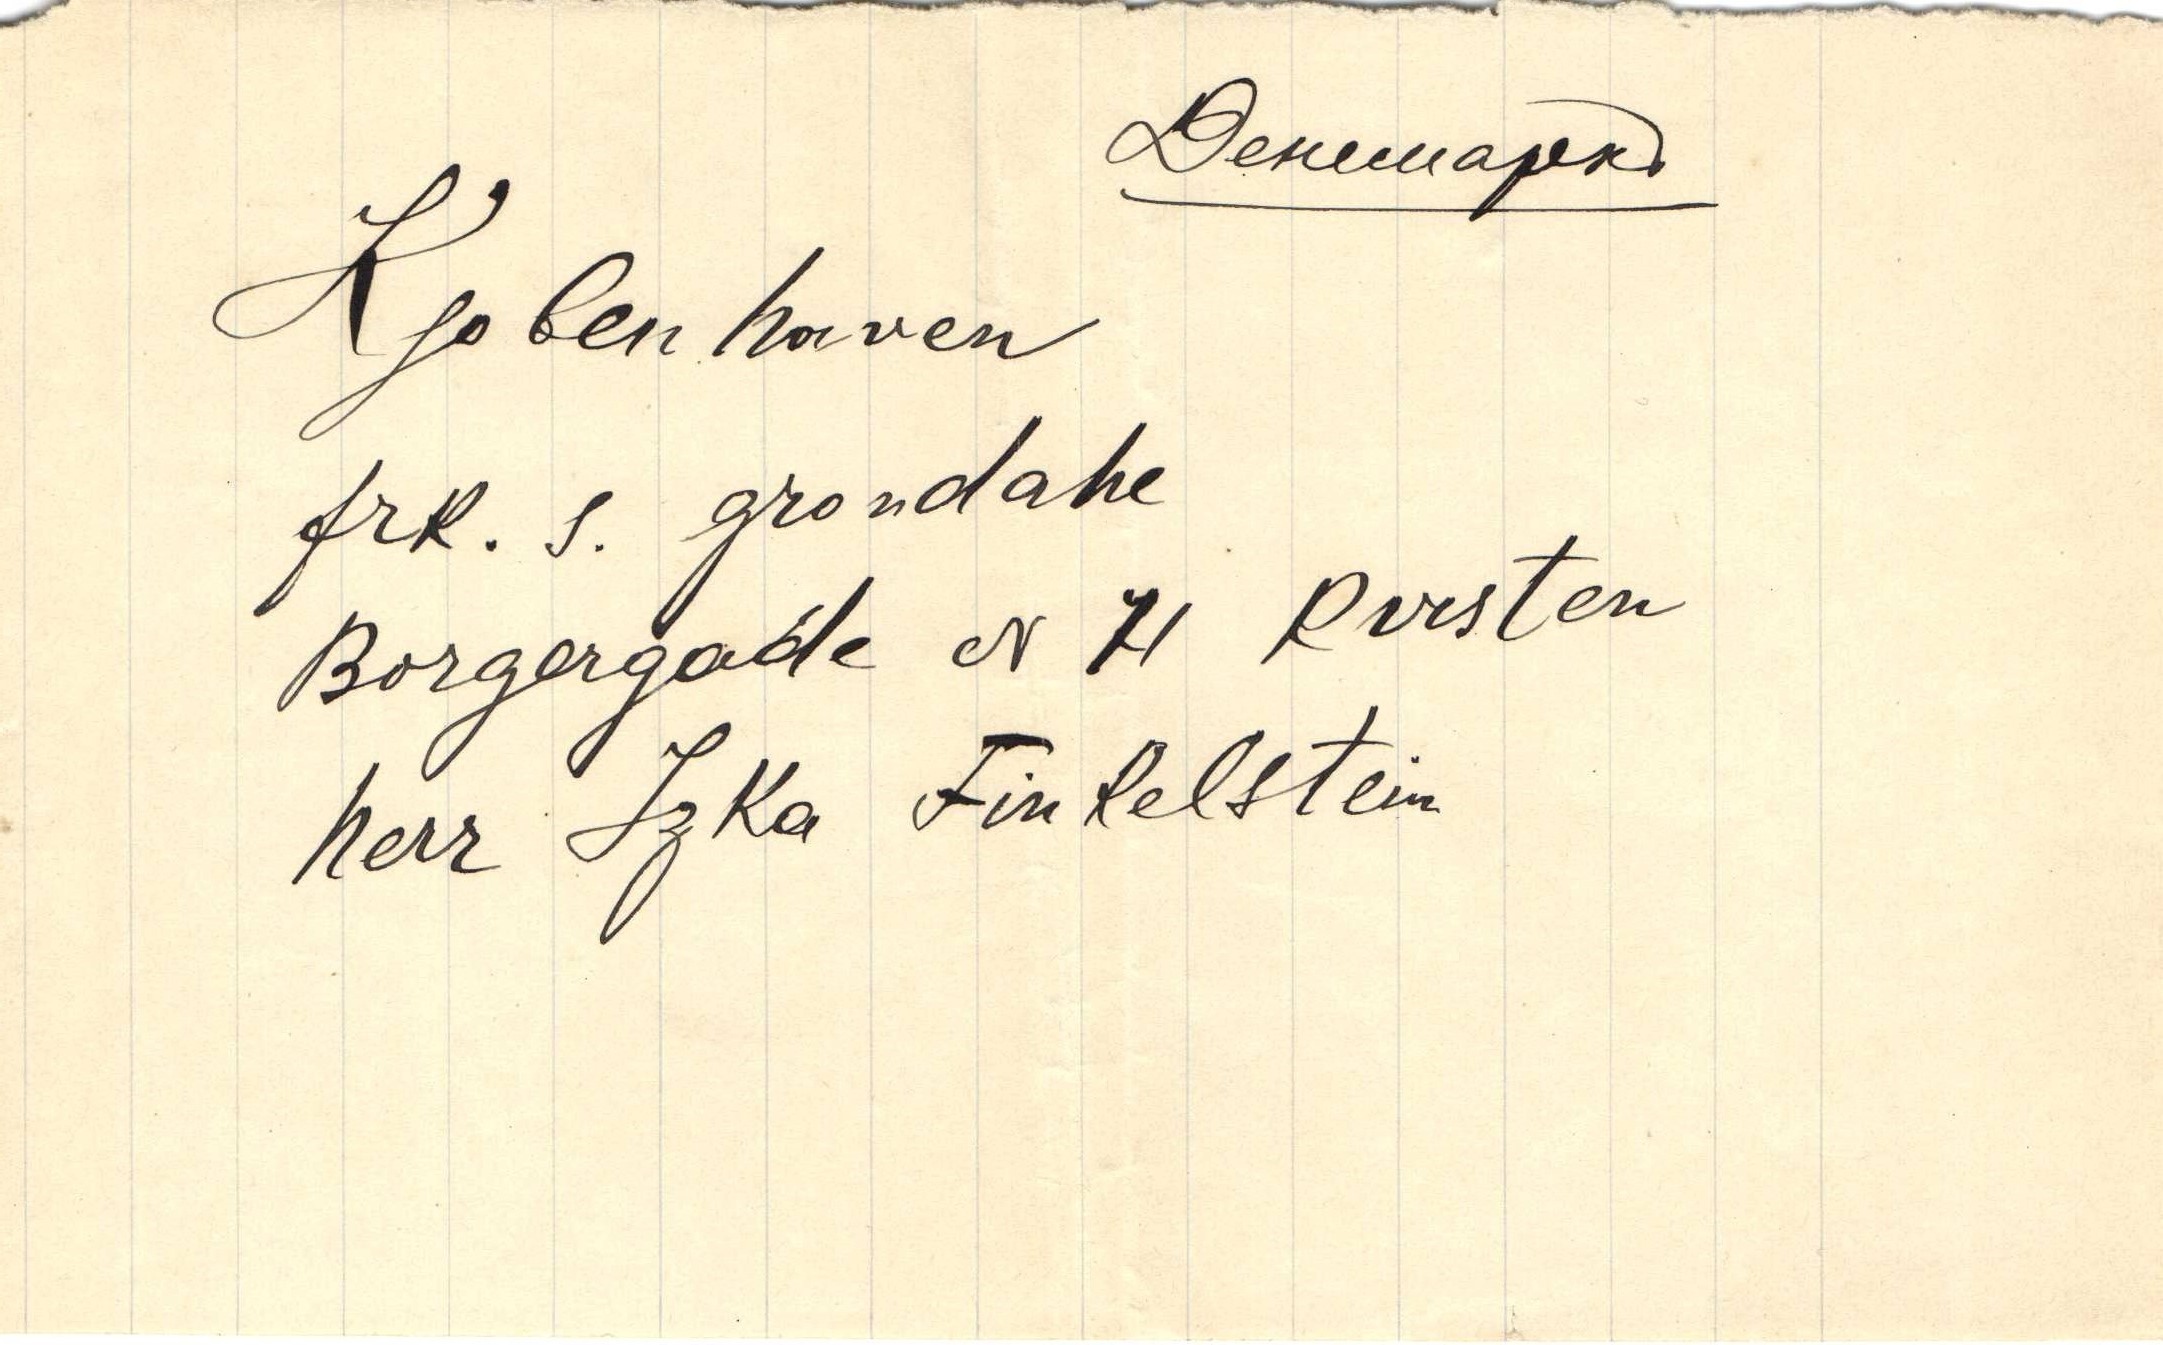 Денемаркъ
Kjobenhaven
frk. S. grondahe
Borgergade N 71 Kvisten
herr Izka Finkelstein